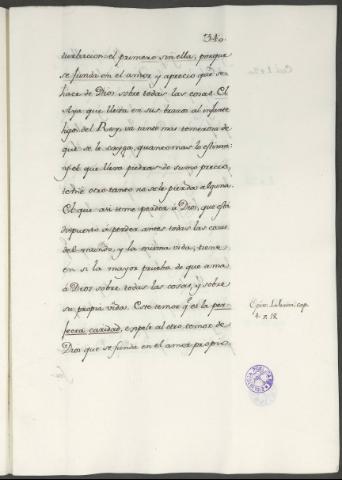 340
turbacion: el primero sin ella, porque
se funda en el amor y aprecio que se
hace de Dios sobre todas las cosas. El
Aya que lleva en sus brazos al infante
hijo del Rey, va tanto mas temerosa de
que se le caiga, quanto mas lo estima:
y el que lleva piedras de sumo precio,
teme otro tanto no se le pierda alguna.
El que asi teme perder á Dios, que está
dispuesto á perder antes todas las cosas
del mundo, y la misma vida, tiene
en si la mayor prueba de que ama
á Dios sobre todas las cosas, y sobre
su propia vida. Este temor q.e el la per-
fecta caridad, expele al otro temor de
Dios que se funda en el amor propio
cap.
4. v. 18.